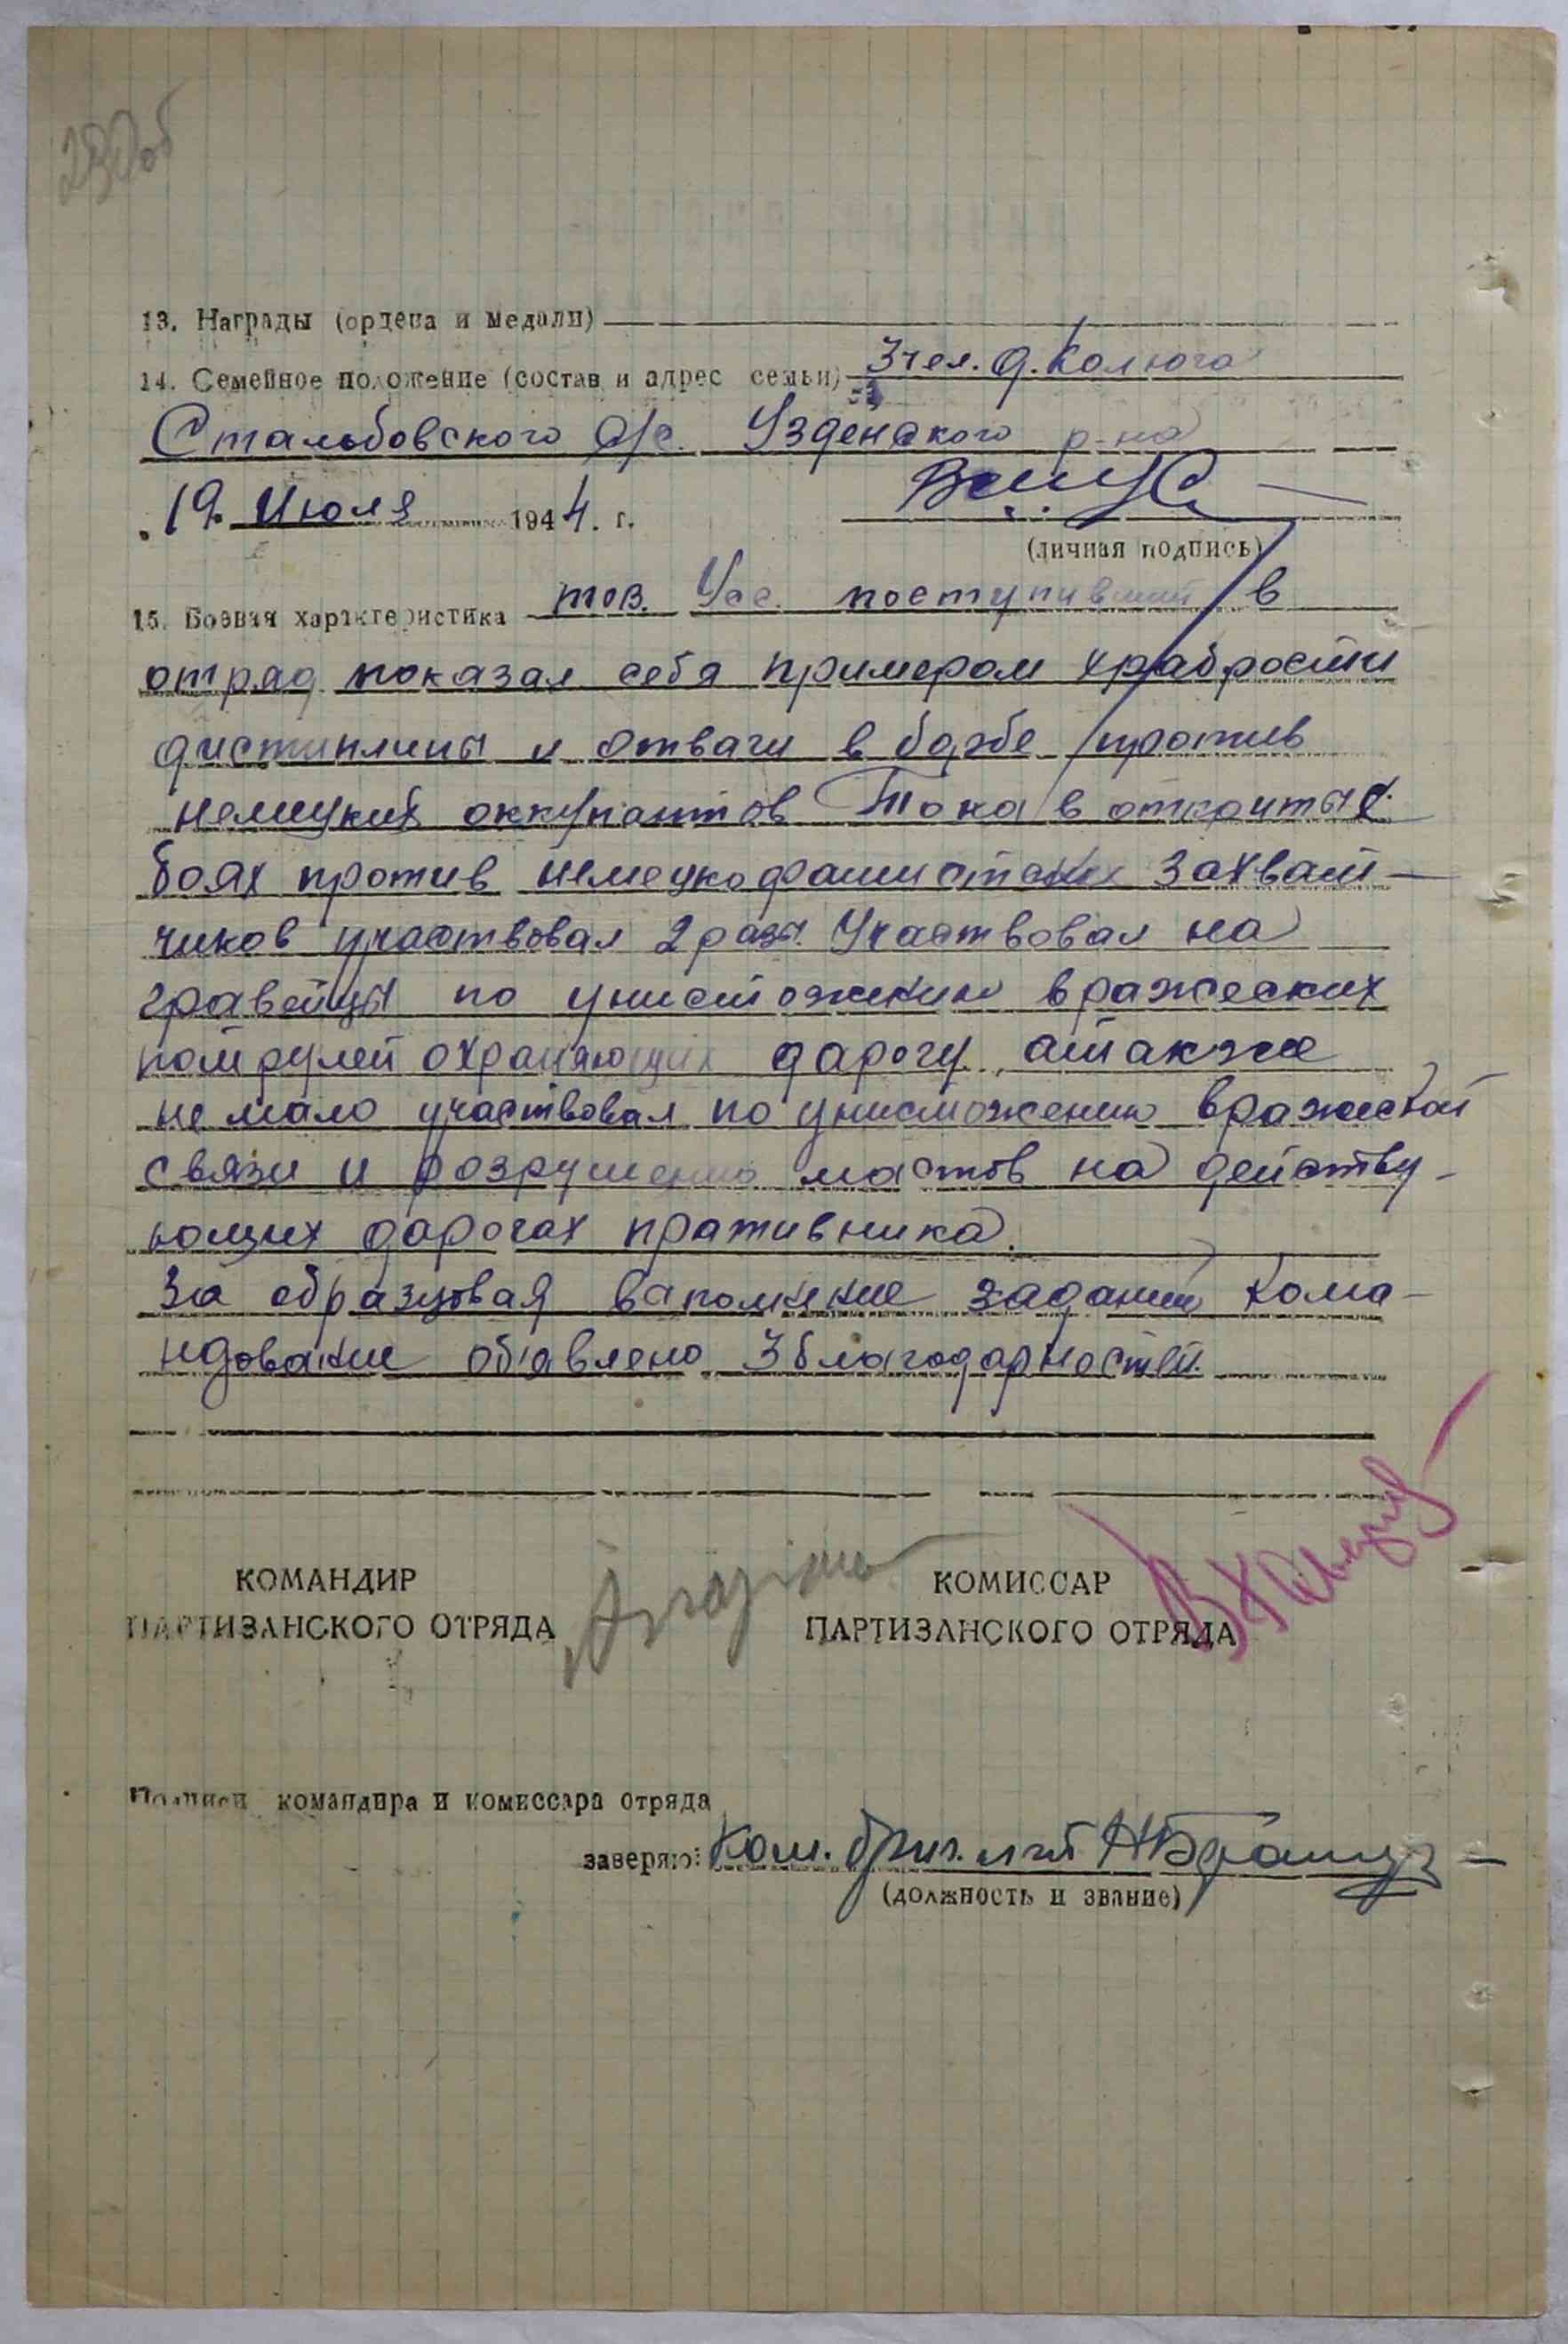 230об
13. Награды (ордена и медали)
14. Семейное положение (состав и адрес семьи) 3 чел. д. Калюга
Стальбовского с/с. Узденского р-на
19. Июля 1944. г.
(личная подпись)
15. Боевая характеристика тов. Уас. поступивший в
отряд показал себя примером храбрости
дистиплины и отваги в борбе против
немецких оккупантов Тока в открытых
боях против немецкофашистских захват-
чиков участвовал 2 разы. Участвовал на
гравейцы по уништожению вражеских
патрулей охраняющих дарогу, атакже
не мало участвовал по уништожению вражеской
связи и розрушению мастов на действу-
ющих дарогах пративника.
За образцовая ваполнение заданий кома-
ндование обявлено 3 благодарностей.
КОМАНДИР
ПАРТИЗАНСКОГО ОТРЯДА
КОМИССАР
ПАРТИЗАНСКОГО ОТРЯДА
Подписи командира и комиссара отряда
заверяю: Ком. бриг.
(должность и звание)